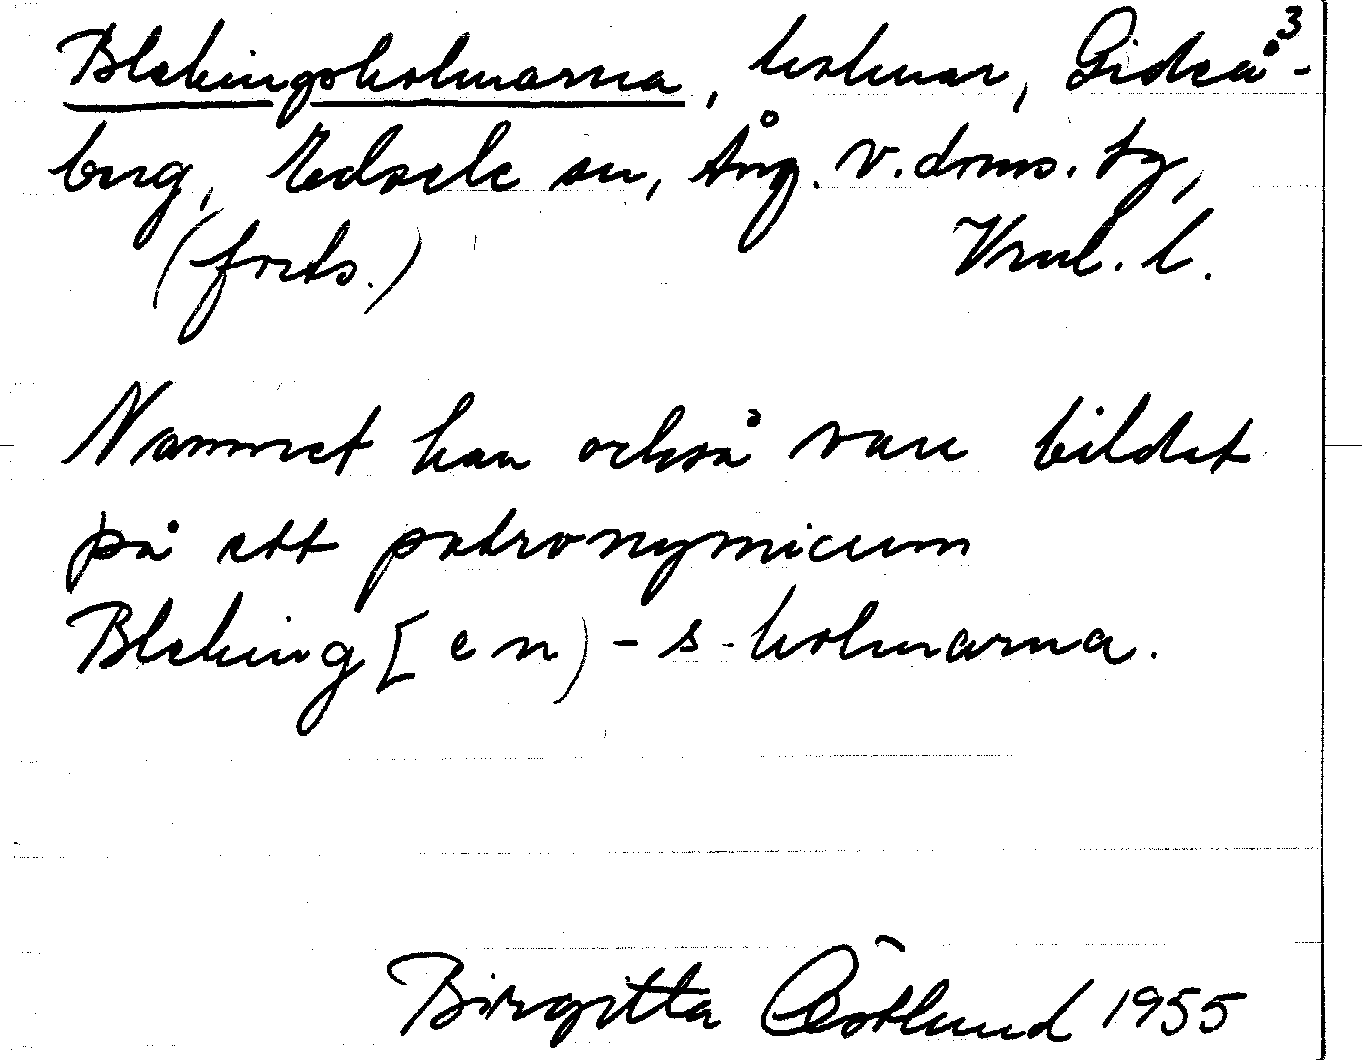 3
Blekingsholmarna, holmar, Gideå-
berg, Edsele sn, Ång. v. doms. tg,
(forts.) Vnl. l.
Namnet kan också vara bildat
på ett patronymicum
Bleking[en)-s-holmarna.
Birgitta Östlund 1955